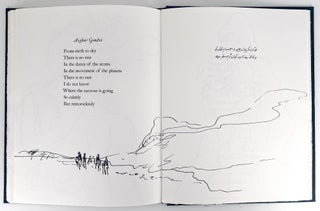 Asghar Gondvi
From earth to sky
There is no rest
In the dance of the atoms
In the movement of the planets
There is no rest
I do not know
Where the caravan is going
So calmly
But remorselessly